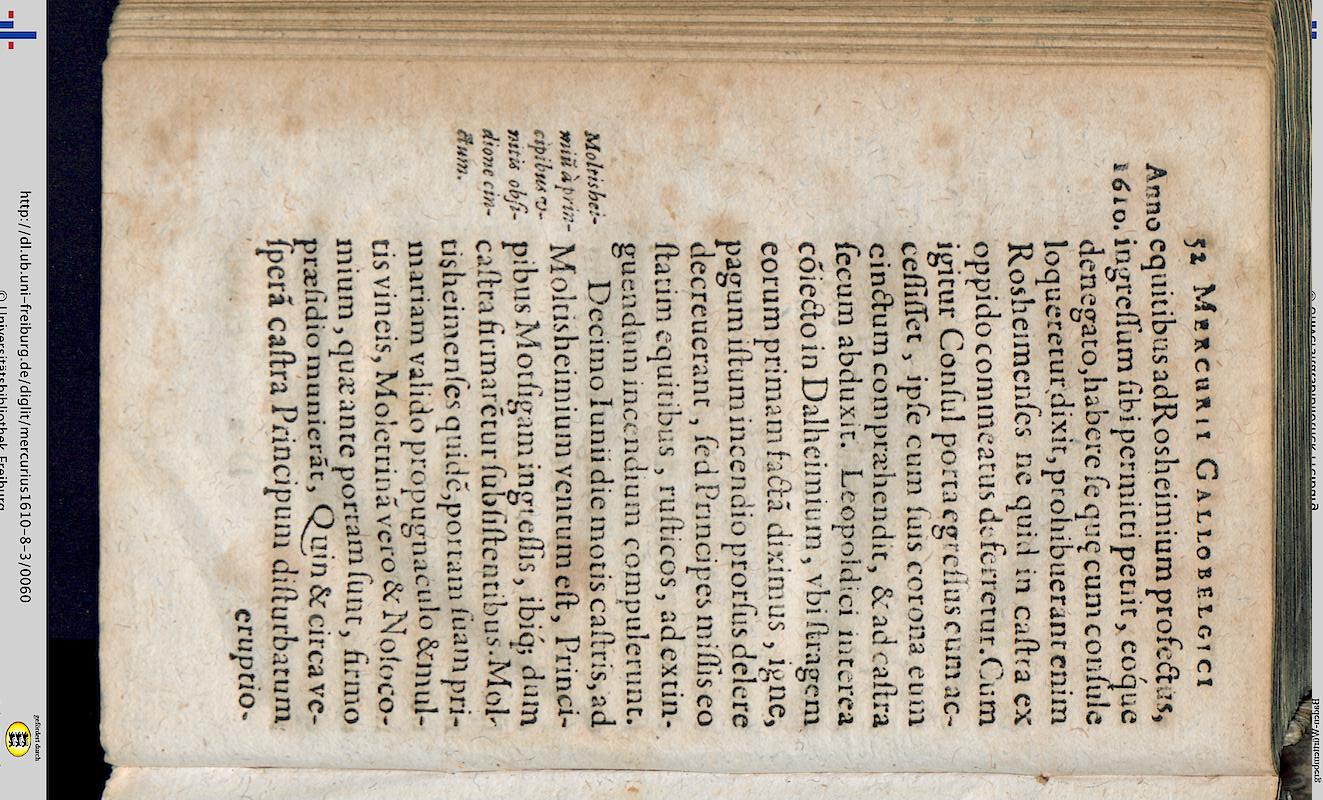 52 MERCURII GALLOBELGICI
Anno equitibus ad Rosheimium profectus,
1610. ingreſſum ſibi permitti petiit, eóque
denegato, habere ſe quę cum conſule
loqueretur dixit, prohibuerant enim
Rosheimenſes ne quid in caſtra ex
oppido commeatus deferretur. Cùm
igitur Conſul porta egreſſus cum ac-
ceſſiſſet, ipſe cum ſuis corona eum
cinctum comprahendit, & ad caſtra
ſecum abduxit. Leopoldici interea
cōiecto in Dalheimium, vbi ſtragem
eorum primam factā diximus, igne,
pagum iſtum incendio prorſus delere
decreuerant, ſed Principes miſſis eo
ſtatim equitibus, ruſticos, ad extin-
guendum incendium compulerunt.
Decimo Iunii die motis caſtris, ad
Moltisheimium ventum eſt, Princi-
pibus Morſigam ingreſſis, ibiq́; dum
caſtra firmarētur ſubſiſtentibus. Mol-
tisheimenſes quidē, portam ſuam pri-
mariam valido propugnaculo & mul-
tis vineis, Moletrinā vero & Noſoco-
mium, quæ ante portam ſunt, firmo
præſidio munierāt, Quin & circa ve-
ſperā caſtra Principum diſturbatum
eruptio-
Moltishei-
miū à prin-
cipibus v-
niris obſi-
dione cin-
ctum.
http://dl.ub.uni-freiburg.de/diglit/mercurius1610-8-3/0060
© Universitätsbibliothek Freiburg
gefördert durch